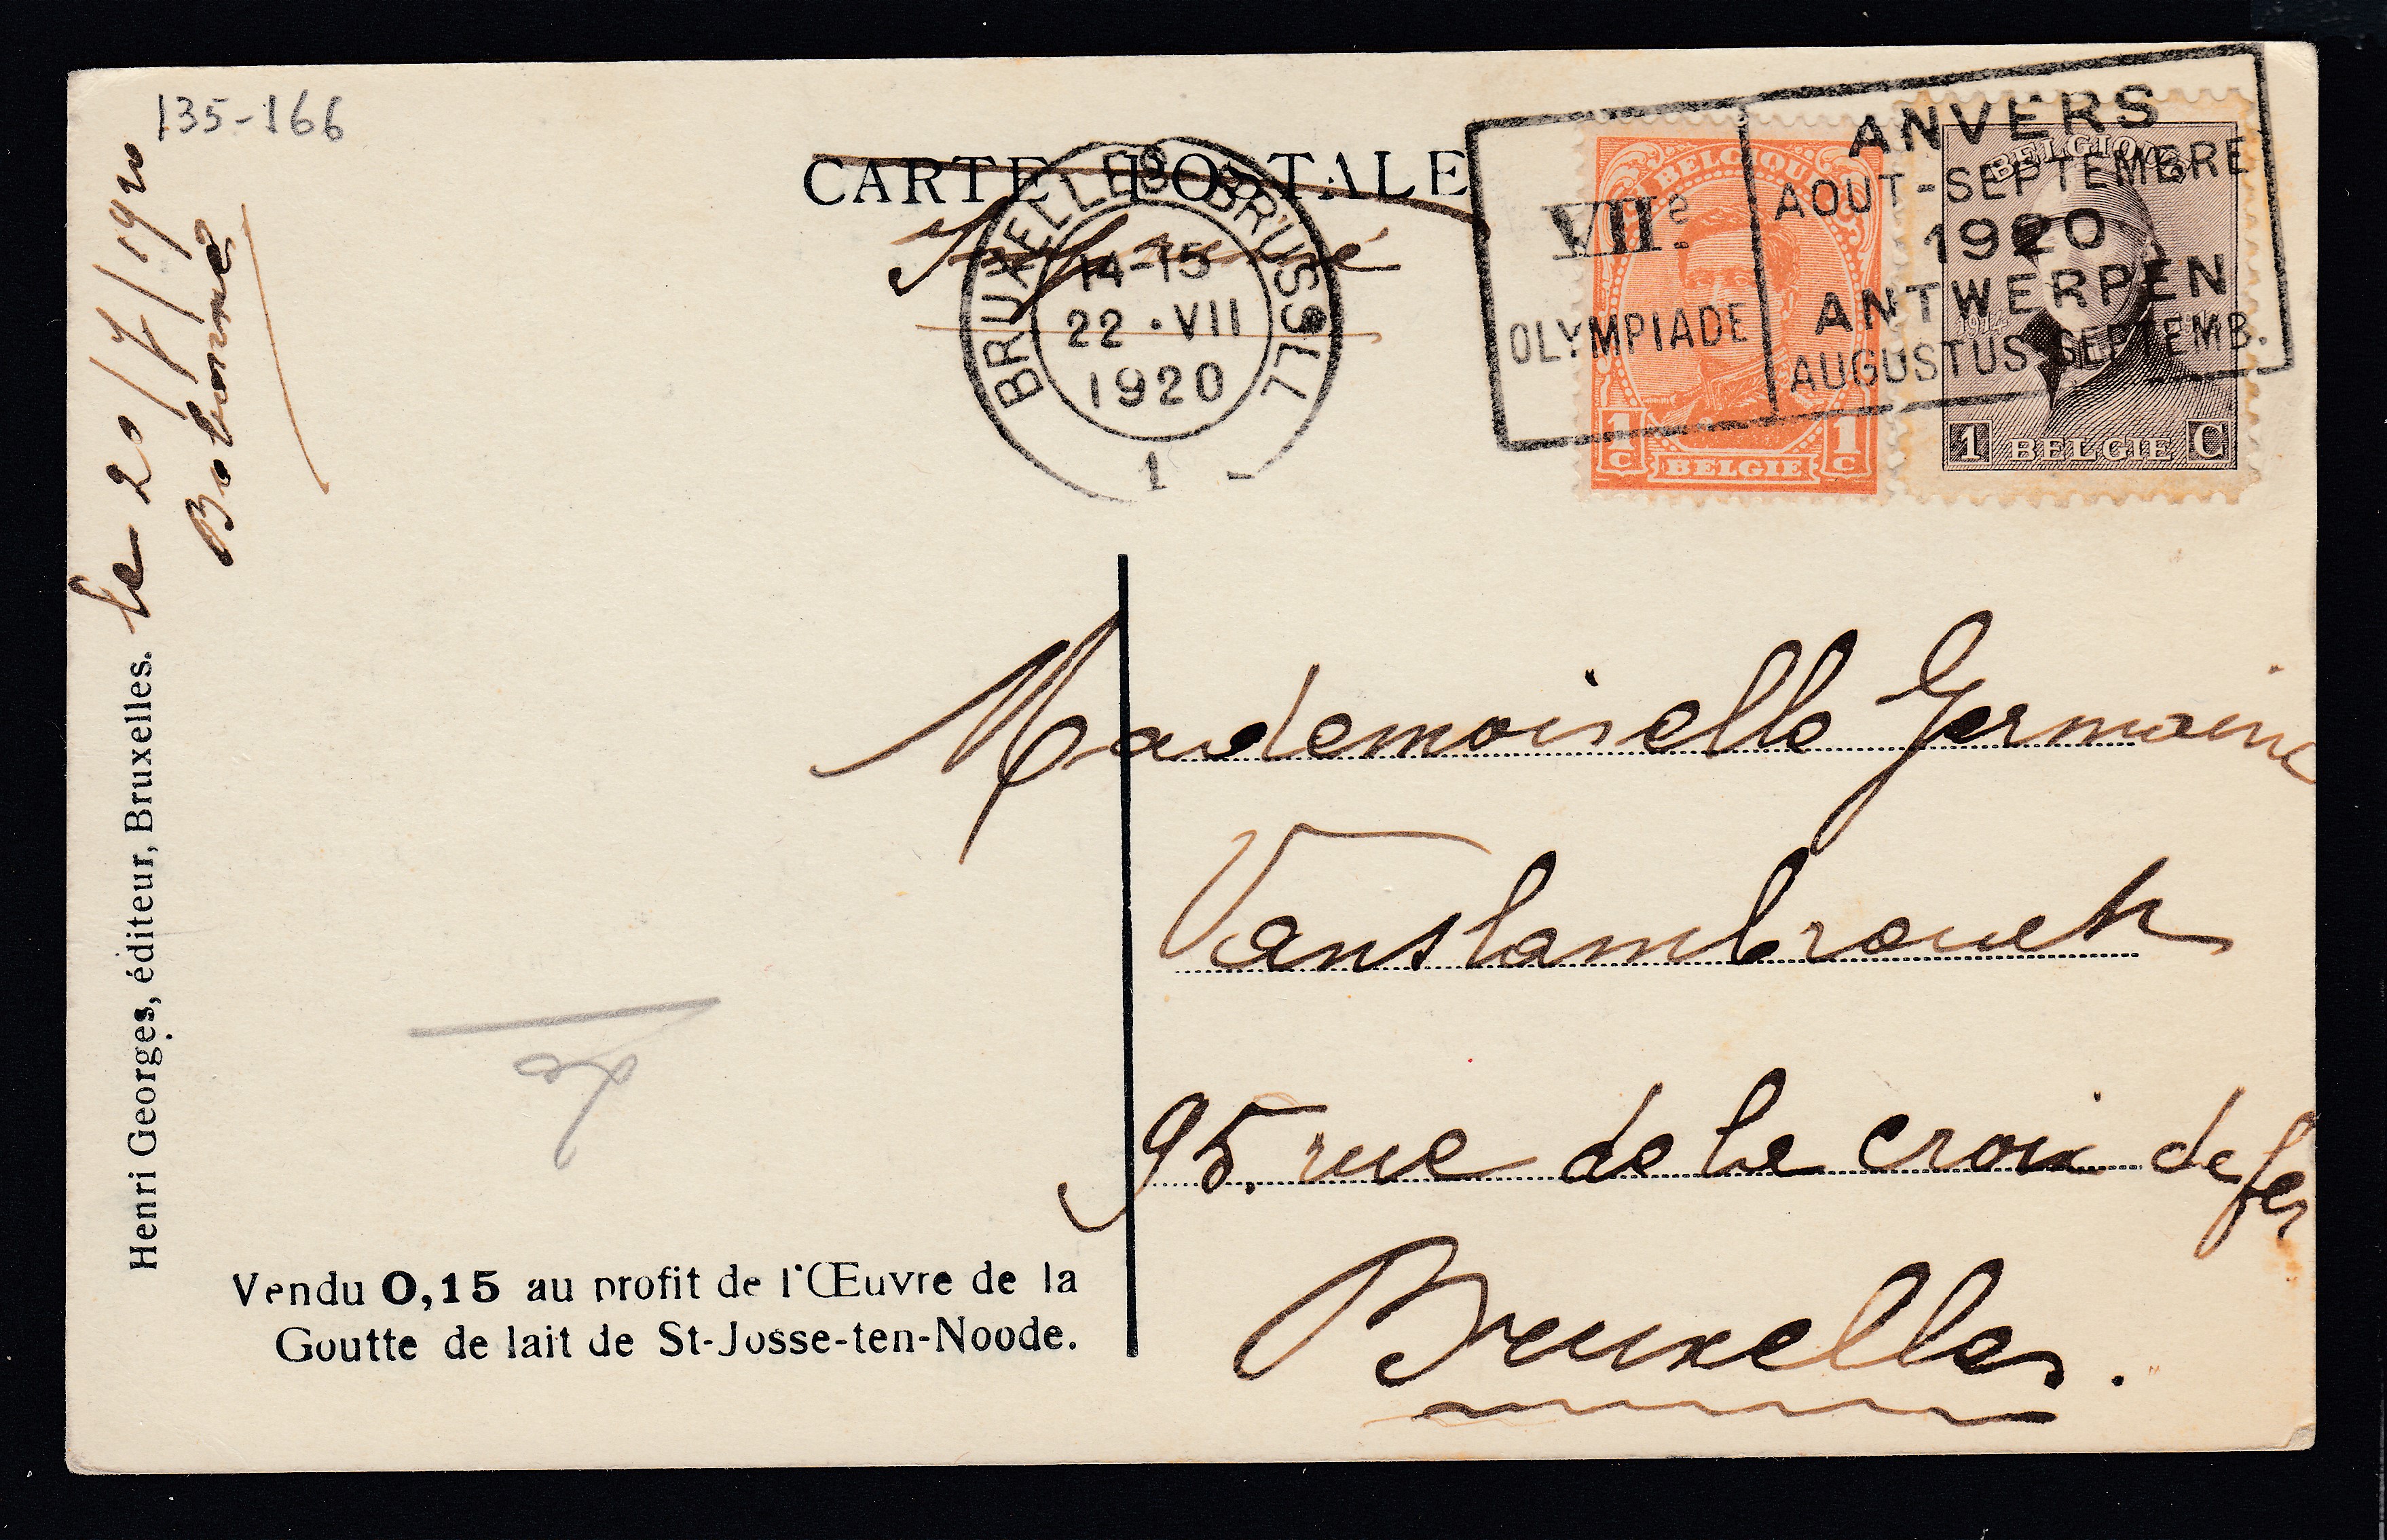 135-166
CARTE POSTALE
Imprimé
BRUXELLES BRUSSEL
14-15
22 · VII
1920
1
VIIe
OLYMPIADE
ANVERS
AOUT-SEPTEMBRE
1920
ANTWERPEN
AUGUSTUS-SEPTEMB.
BELGIQUE
1C BELGIE 1C
BELGIQUE
1914
1 BELGIE C
le 20/7/1920
Henri Georges, éditeur, Bruxelles.
Mademoiselle Germaine
Vanslambrouck
95. rue de la croix de fer
Bruxelles.
Vendu 0,15 au profit de l'Œuvre de la
Goutte de lait de St-Josse-ten-Noode.